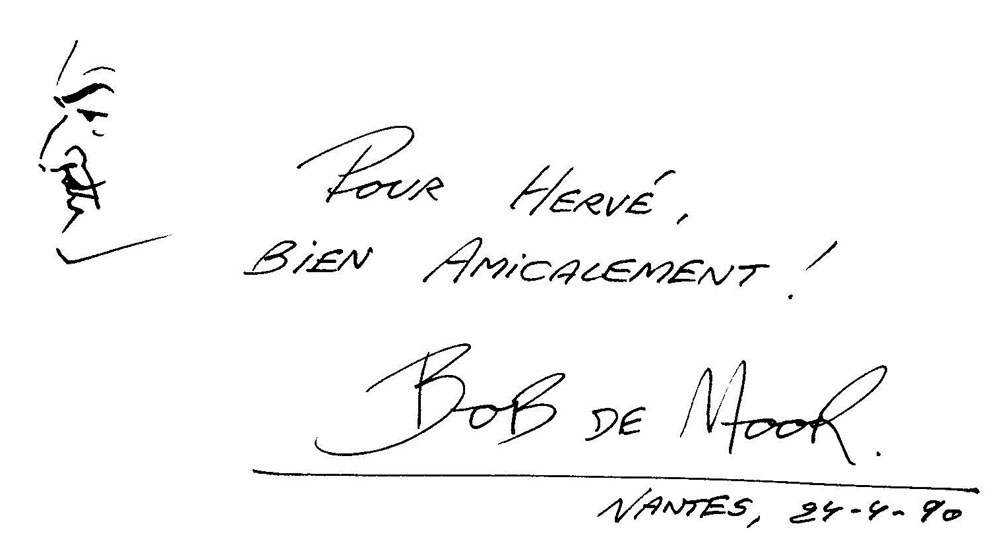 POUR HERVÉ,
BiEN AMiCALEMENT !
BOB DE MOOR.
NANTES, 24-4-90